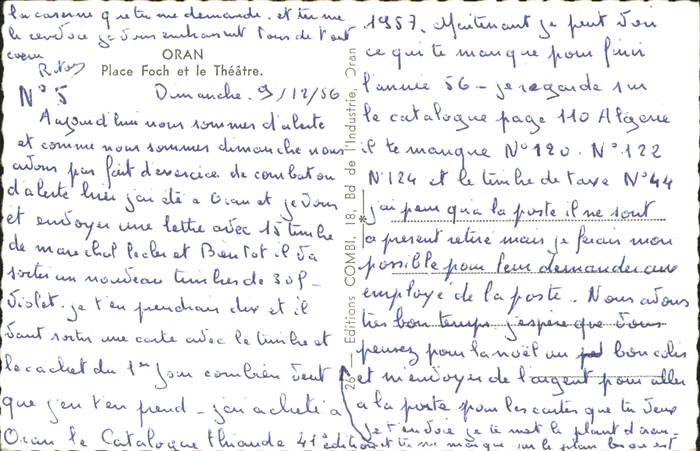 ORAN
Place Foch et le Théâtre.
N° 5
Dimanche. 9/12/56
Aujourd'hui nous sommes d'alerte
et comme nous sommes dimanche nous
avons pas fait d'exercice de combat ou
d'alerte hier j'ai été a Oran et je vous
et envoyer une lettre avec 15 timbre
de marechal Lecler et Bientot il va
sortir un nouveau timbres de 30f-
violet. je t'en prendrais deux et il
vont sortir une carte avec le timbre et
le cachet du 1er Jour combien veut
que j'en t'en prend - j'ai acheté a
Oran le Catalogue Thiaude 41e édition
1957. Maintenant je peut voir
ce qui te manque pour finir
l'année 56 - je regarde sur
le catalogue page 110 Algérie
il te manque N° 120. N° 122
N° 124 et le timbre de taxe N° 44
j'ai peur qu'a la poste il ne sont
a present retiré mais je ferais mon
possible pour leur demander aux
employé de la poste. Nous avons
très bon temps j'espère que vous
pensez pour la noël un bon colis
et m'envoyer de l'argent pour aller
a la poste pour les cartes que tu veux
je t'envoie je te met le plan d'oran.
et tu me marque sur le plan ou est
la caserne que tu me demande. et tu me
le renvoie je vous embrassent tous de tout
coeur
26 — Editions COMBI, 18, Bd de l'Industrie, Oran